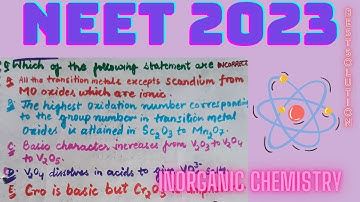 NEET 2023
Q Which of the following statement are INCORRECT
A. All the transition metals excepts scandium from
MO oxides which are ionic.
B. The highest oxidation number corresponding
to the group number in transition metal
Oxides is attained in Sc2O3 to Mn2O7.
C. Basic character increases from V2O3 to V2O4
to V2O5.
D. V2O4 dissolves in acids to give
E. CrO is basic but Cr2O3 is
INORGANIC CHEMISTRY
BESTSOLUTION